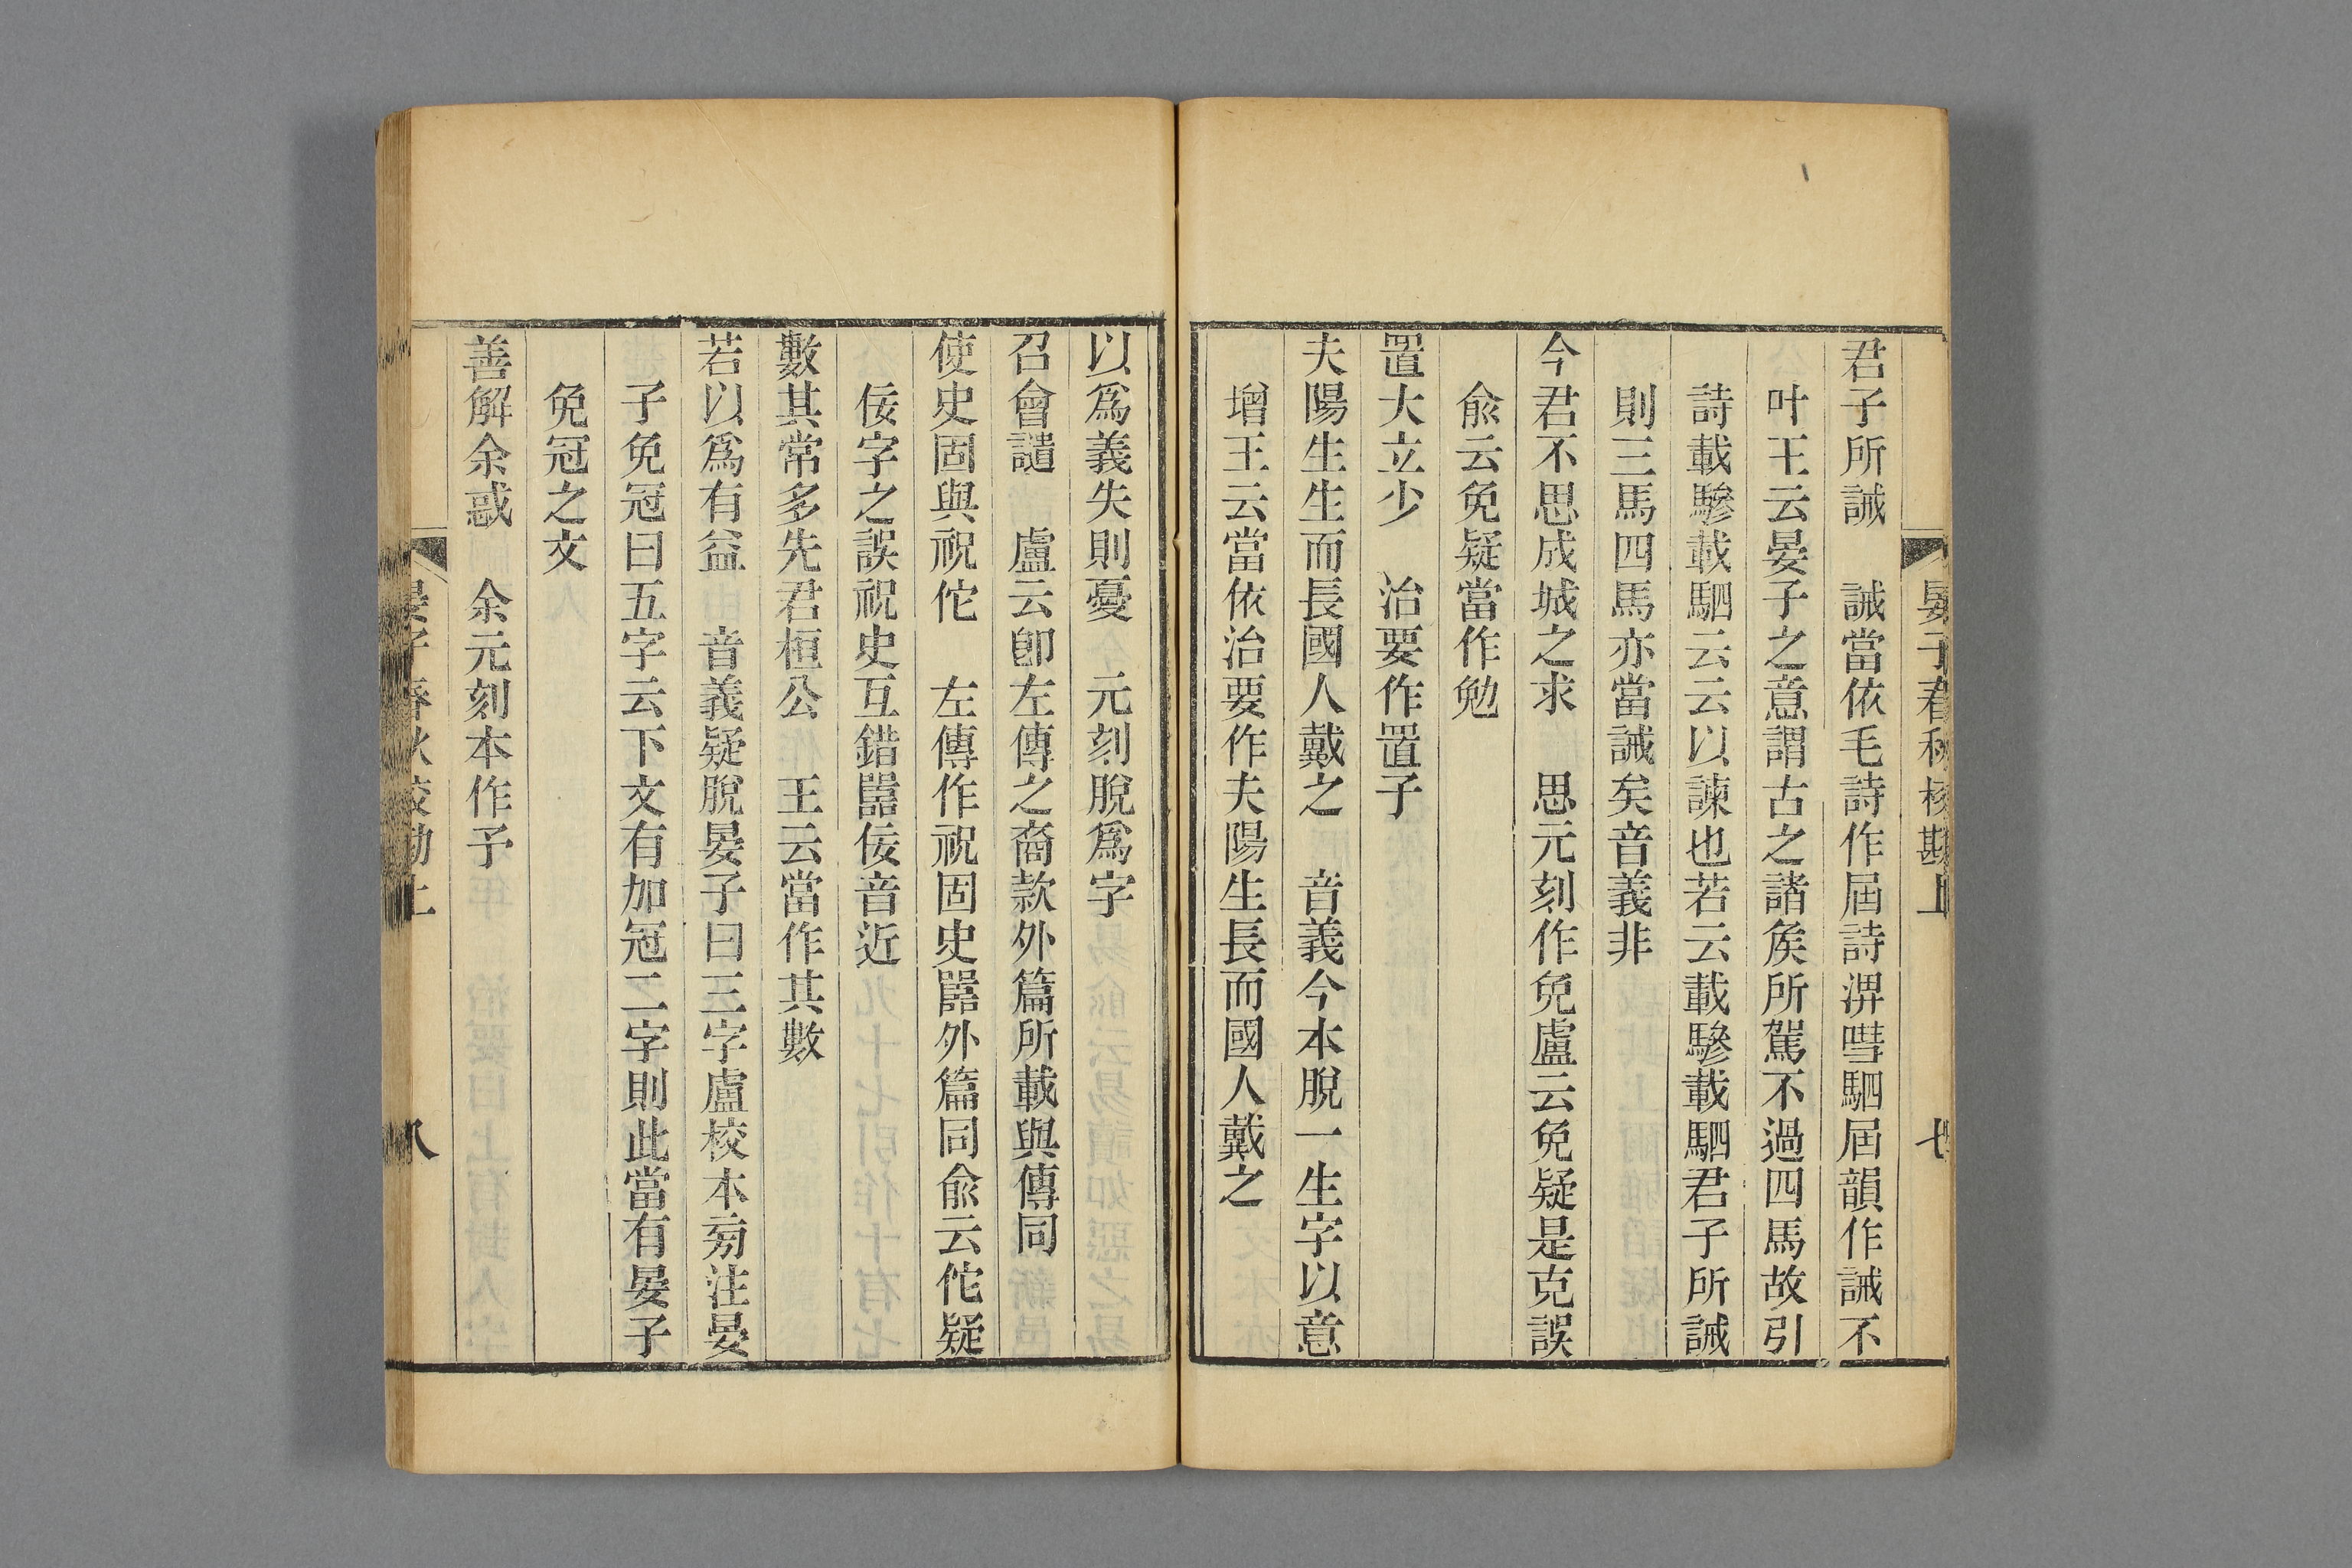 晏子春秋校勘上
七
君子所誡　誡當依毛詩作屆詩淠嘒駟屆韻作誡不
叶王云晏子之意謂古之諸矦所駕不過四馬故引
詩載驂載駟云云以諫也若云載驂載駟君子所誡
則三馬四馬亦當誡矣音義非
今君不思成城之求　思元刻作免盧云免疑是克誤
俞云免疑當作勉
置大立少　治要作置子
夫陽生生而長國人戴之　音義今本脫一生字以意
增王云當依治要作夫陽生長而國人戴之
以爲義失則憂　元刻脫爲字
召會譴　盧云卽左傳之裔款外篇所載與傳同
使史固與祝佗　左傳作祝固史嚚外篇同俞云佗疑
佞字之誤祝史互錯嚚佞音近
數其常多先君桓公　王云當作其數
若以爲有益　音義疑脫晏子曰三字盧校本旁注晏
子免冠曰五字云下文有加冠二字則此當有晏子
免冠之文
善解余惑　余元刻本作予
晏子春秋校勘上
八